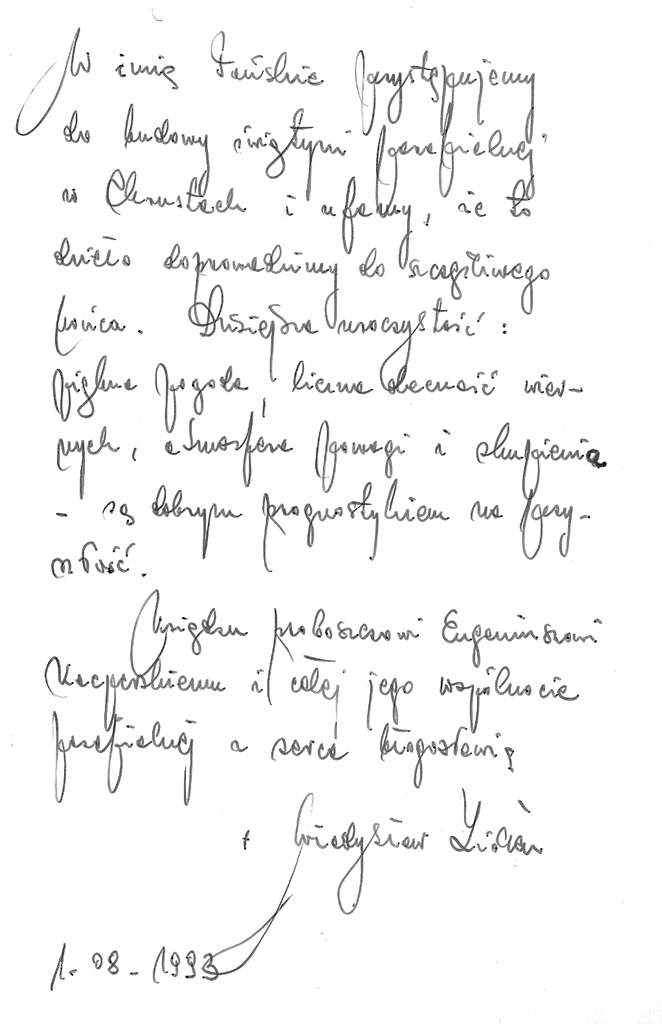 W imię Pańskie przystępujemy
do budowy świątyni parafialnej
w Chrustach i ufamy, że to
dzieło doprowadzimy do szczęśliwego
końca. Dzisiejsza uroczystość:
piękna pogoda, liczna obecność wier-
nych, atmosfera powagi i skupienia
- są dobrym prognostykiem na przy-
szłość.
Księdzu proboszczowi Eugeniuszowi
Kacperskiemu i całej jego wspólnocie
parafialnej z serca błogosławię
+ Władysław Ziółek
1. 08 - 1993